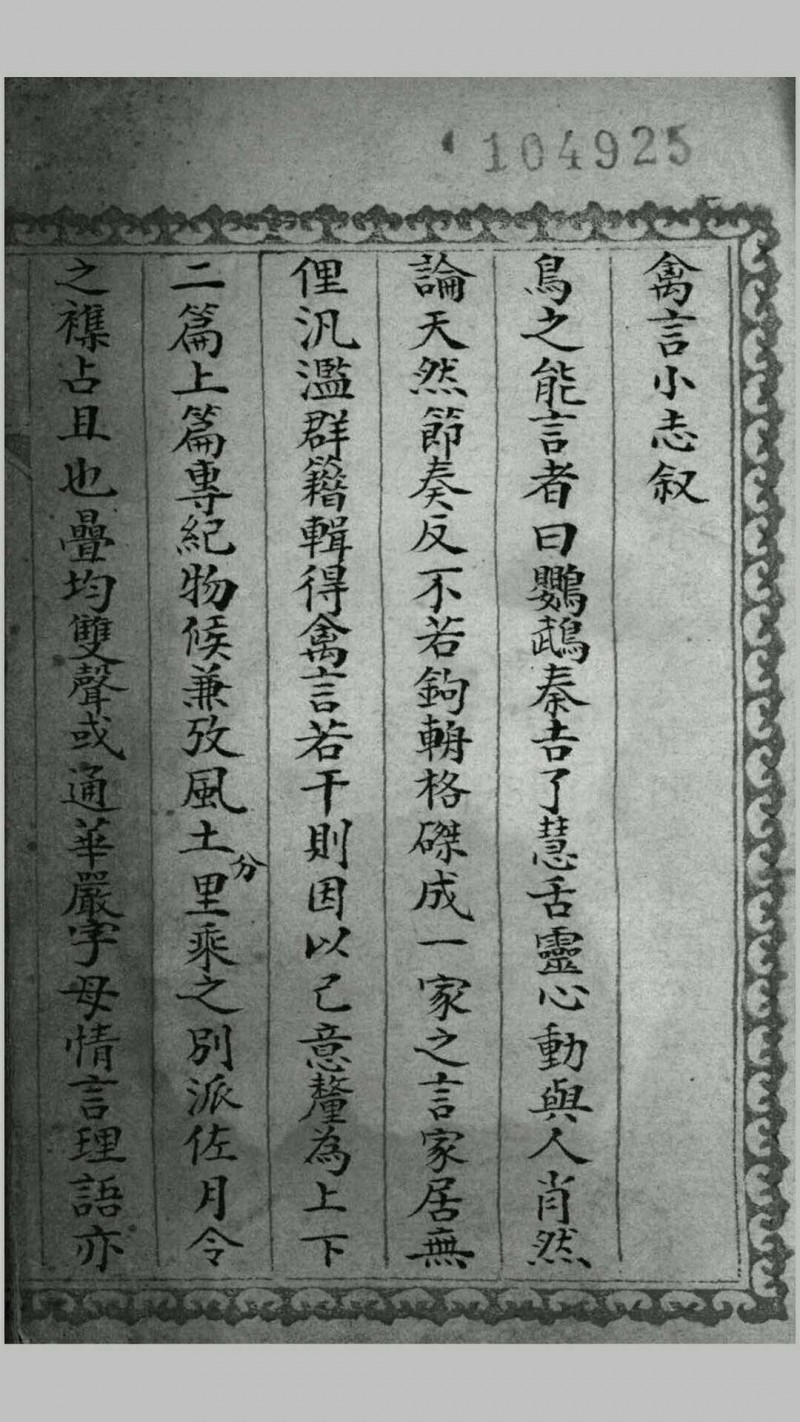 104925
禽言小志叙
鳥之能言者曰鸚鵡秦吉了慧舌靈心動與人肖然
論天然節奏反不若鉤輈格磔成一家之言家居無
俚汎濫群籍輯得禽言若干則因以己意釐為上下
二篇上篇專紀物候兼攷風土分里乘之別派佐月令
之襍占且也疊均雙聲或通華嚴字母情言理語亦